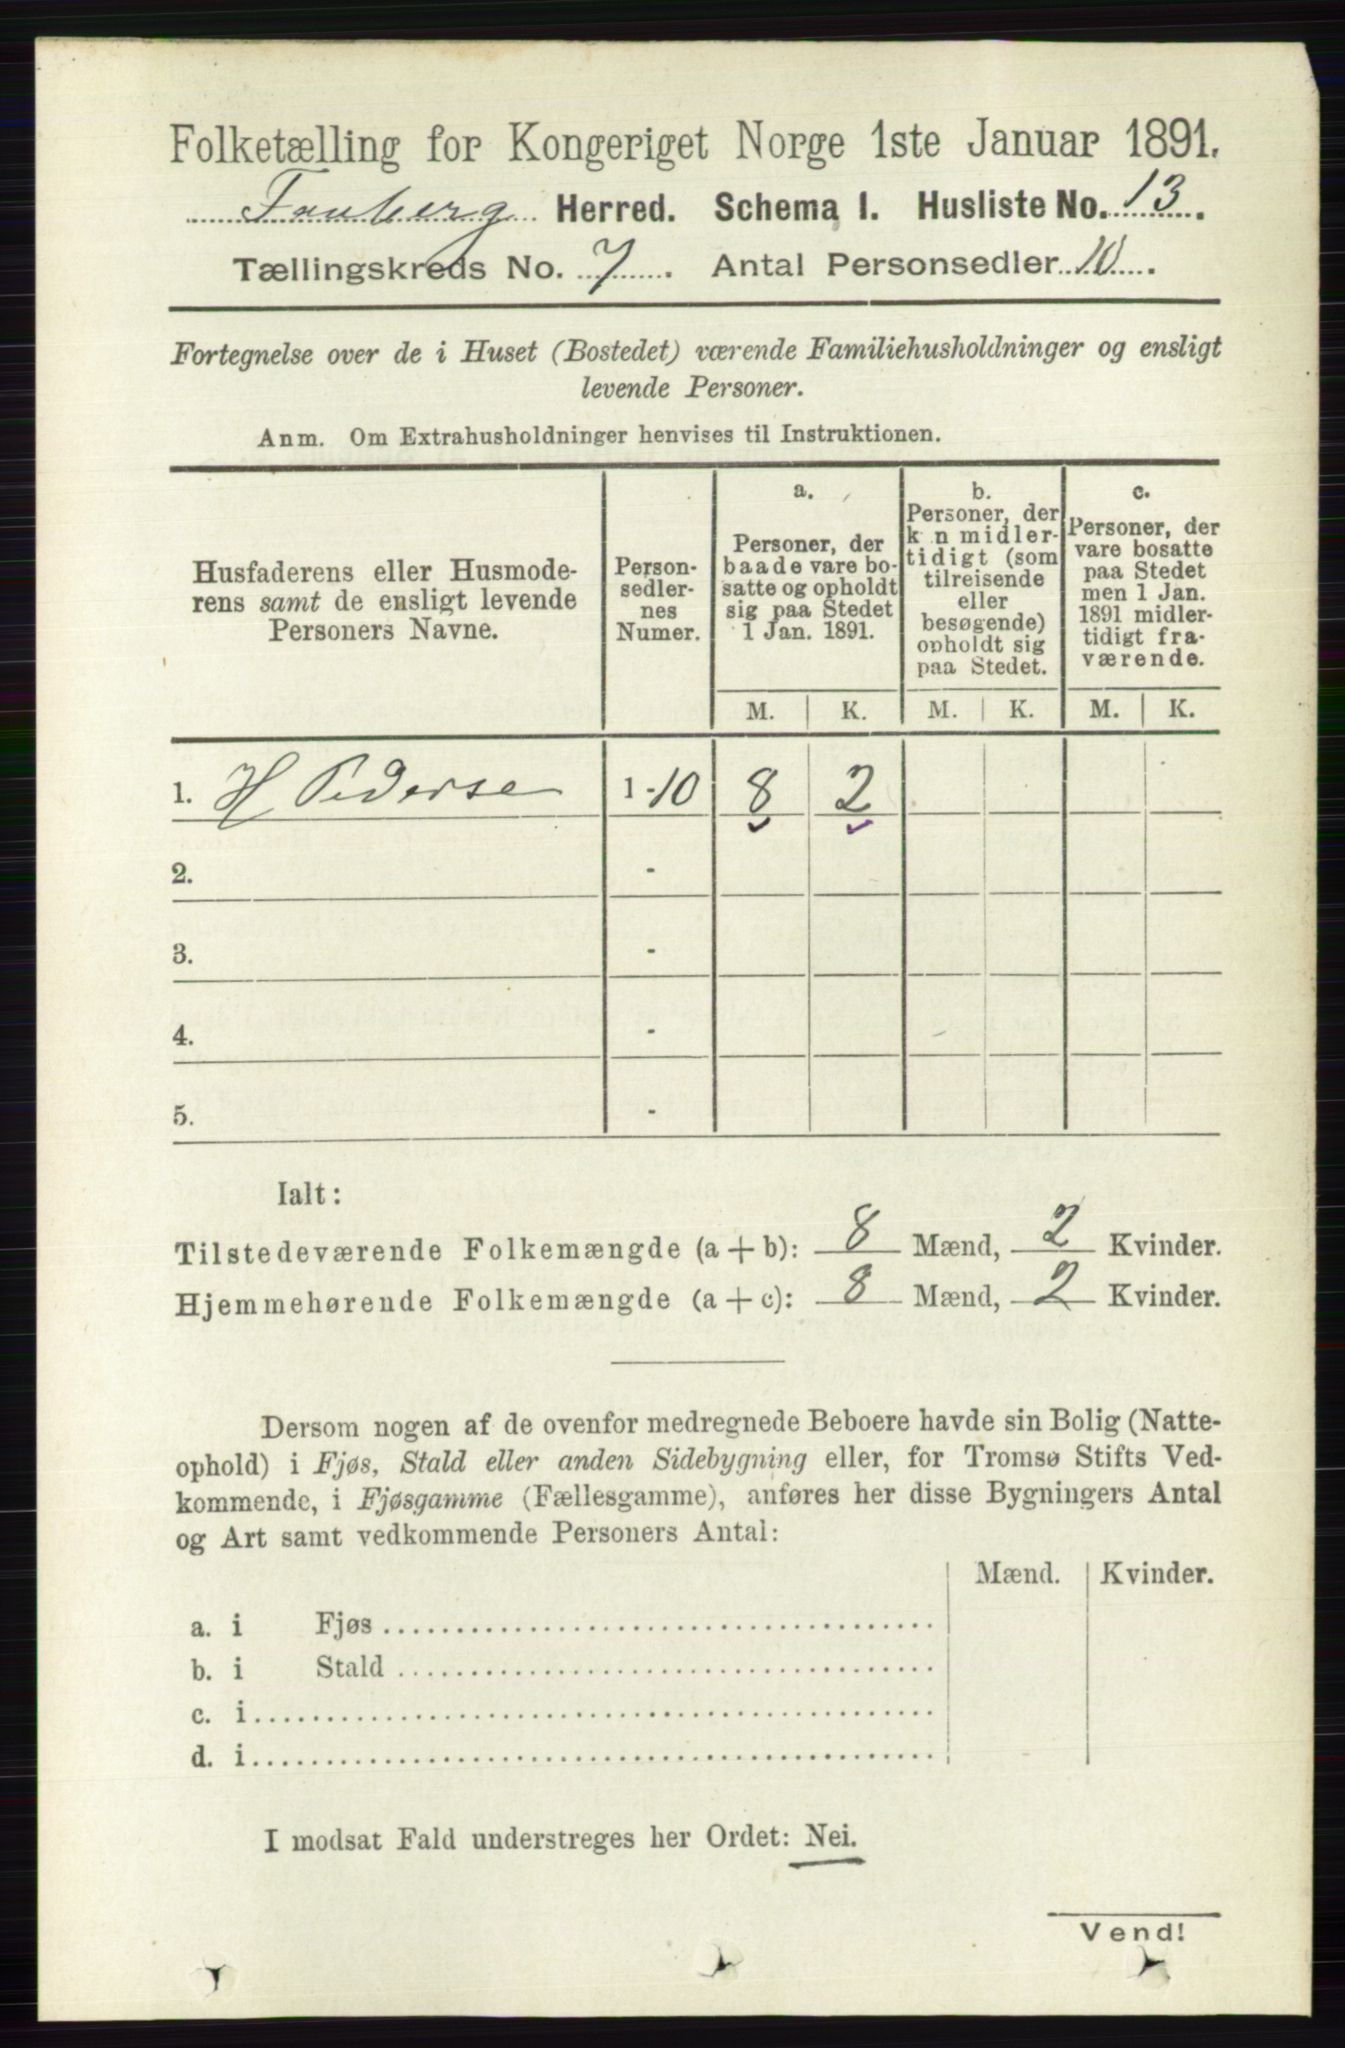 Folketælling for Kongeriget Norge 1ste Januar 1891.
Faaberg Herred. Schema I. Husliste No. 13.
Tællingskreds No. 7. Antal Personsedler 10.
Fortegnelse over de i Huset (Bostedet) værende Familiehusholdninger og ensligt
levende Personer.
Anm. Om Extrahusholdninger henvises til Instruktionen.
Husfaderens eller Husmode-
rens samt de ensligt levende
Personers Navne.
Person-
sedler-
nes
Numer.
a.
Personer, der
baade vare bo-
satte og opholdt
sig paa Stedet
1 Jan. 1891.
b.
Personer, der
k n midler-
tidigt (som
tilreisende
eller
besøgende)
opholdt sig
paa Stedet.
c.
Personer, der
vare bosatte
paa Stedet
men 1 Jan.
1891 midler-
tidigt fra-
værende.
M. K. M. K. M. K.
1. H Pederse 1 - 10 8 2
2. -
3. -
4. -
5. -
Ialt:
Tilstedeværende Folkemængde (a + b): 8 Mænd, 2 Kvinder.
Hjemmehørende Folkemængde (a + c): 8 Mænd, 2 Kvinder.
Dersom nogen af de ovenfor medregnede Beboere havde sin Bolig (Natte-
ophold) i Fjøs, Stald eller anden Sidebygning eller, for Tromsø Stifts Ved-
kommende, i Fjøsgamme (Fællesgamme), anføres her disse Bygningers Antal
og Art samt vedkommende Personers Antal:
Mænd. Kvinder.
a. i Fjøs
b. i Stald
c. i
d. i
I modsat Fald understreges her Ordet: Nei.
Vend!